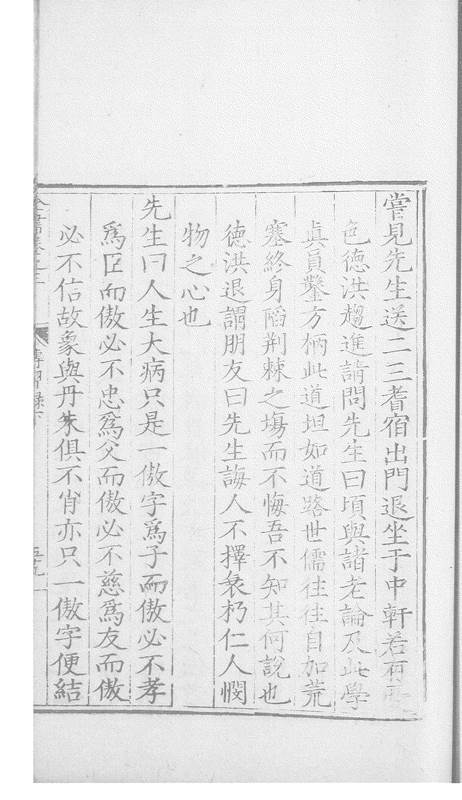 嘗見先生送二三耆宿出門退坐于中軒若有
色德洪趨進請問先生曰頃與諸老論及此學
眞員鑿方枘此道坦如道路世儒往往自加荒
塞終身陷荆棘之塲而不悔吾不知其何說也
德洪退謂朋友曰先生誨人不擇衰朽仁人憫
物之心也
先生曰人生大病只是一傲字爲子而傲必不孝
爲臣而傲必不忠爲父而傲必不慈爲友而傲
必不信故象與丹朱俱不肖亦只一傲字便結